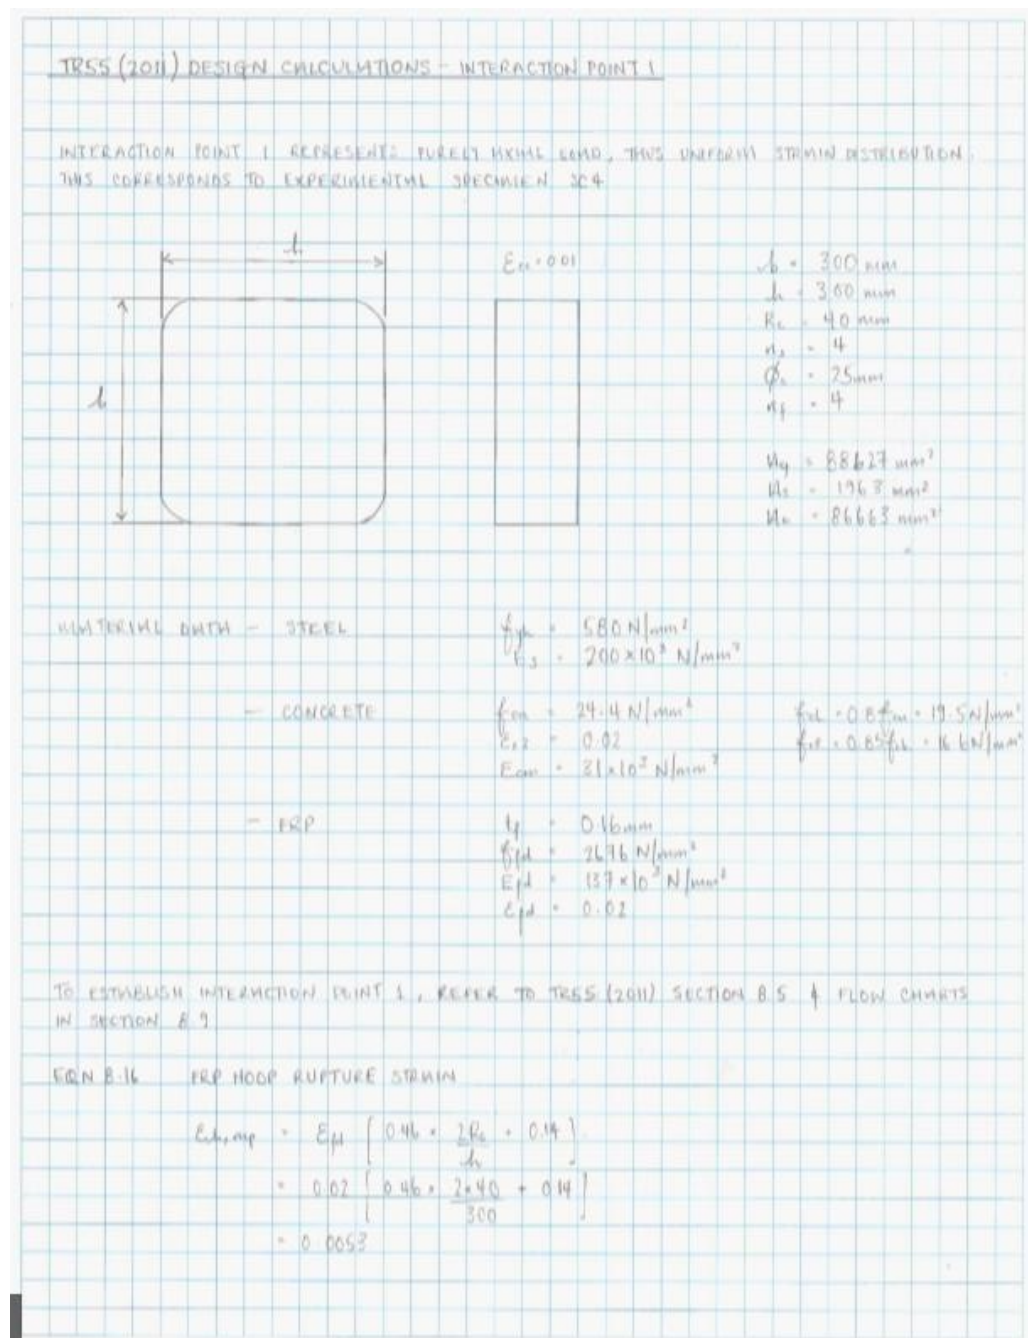 TR55 (2011) DESIGN CALCULATIONS - INTERACTION POINT 1
INTERACTION POINT 1 REPRESENTS PURELY AXIAL LOAD, THUS UNIFORM STRAIN DISTRIBUTION.
THIS CORRESPONDS TO EXPERIMENTAL SPECIMEN SC4
b
h
εcc = 0.01
b = 300 mm
h = 300 mm
Rc = 40 mm
ns = 4
φs = 25mm
nf = 4
Ag = 88627 mm²
As = 1963 mm²
Ac = 86663 mm²
MATERIAL DATA - STEEL
fyk = 580 N/mm²
Es = 200×10³ N/mm²
- CONCRETE
fcm = 24.4 N/mm²
fck = 0.8fcm = 19.5N/mm²
εc2 = 0.02
= 0.85fck = 16.6N/mm²
Ecm = 31×10³ N/mm²
- FRP
tf = 0.16mm
ffd = 2696 N/mm²
Efd = 137×10³ N/mm²
εfd = 0.02
TO ESTABLISH INTERACTION POINT 1, REFER TO TR55 (2011) SECTION 8.5 & FLOW CHARTS
IN SECTION 8.9
EQN 8.16 FRP HOOP RUPTURE STRAIN
εh,rup = εfd [0.46 × 2Rc/h + 0.14]
= 0.02 [0.46 × 2×40/300 + 0.14]
= 0.0053